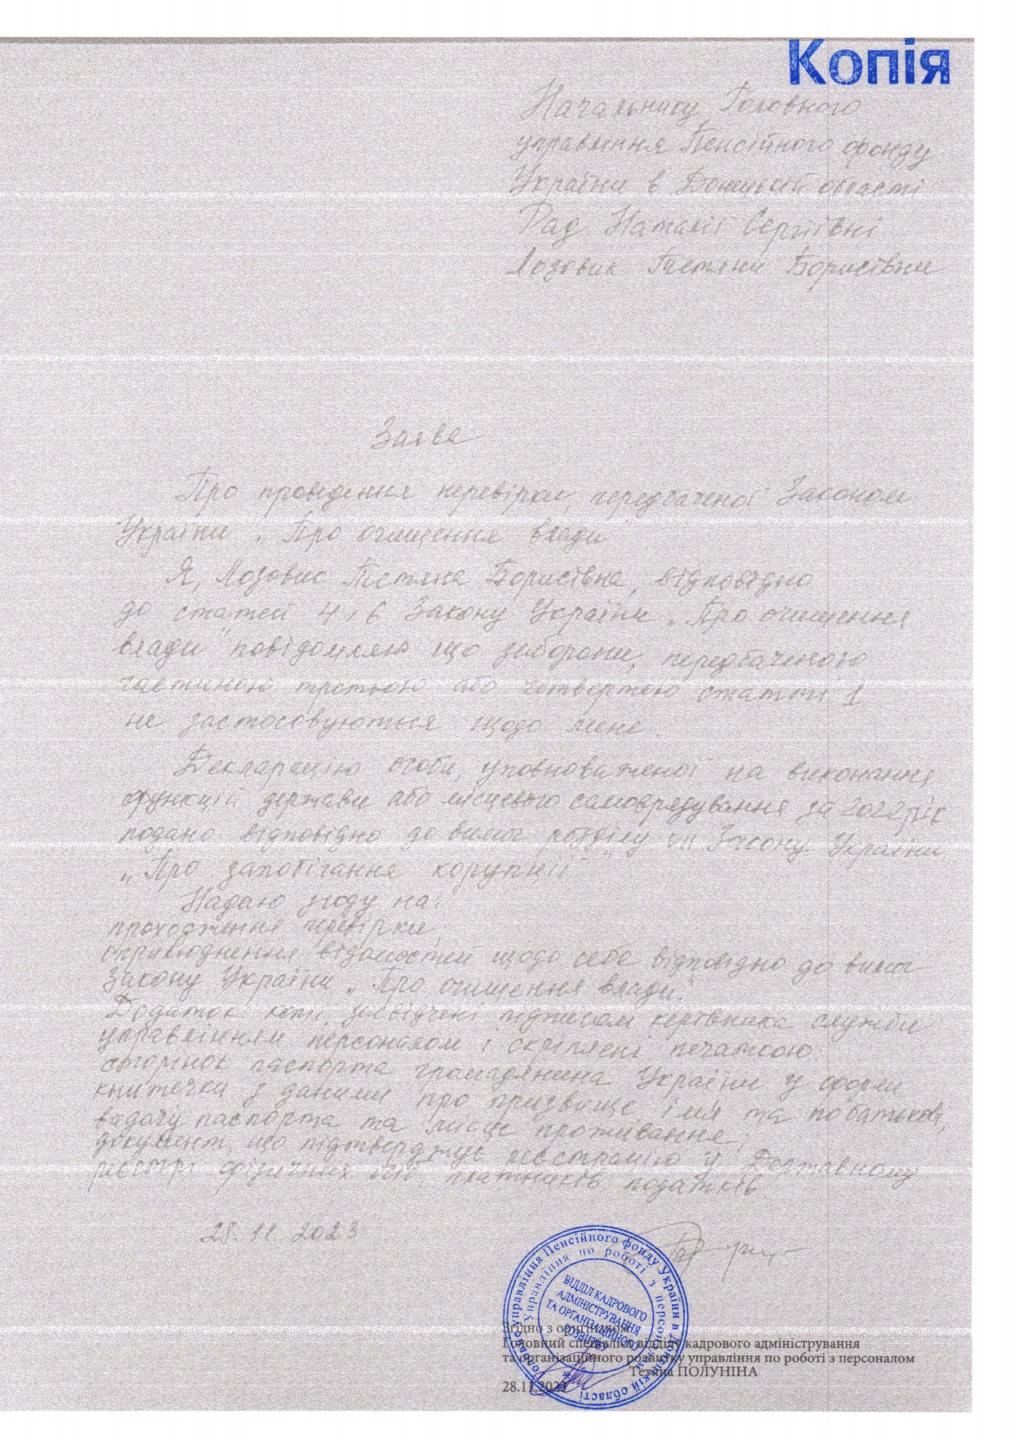 Копія
Начальнику Головного
управління Пенсійного фонду
України в Донецькій області
Рад Наталії Сергіївні
Лозовик Тетяни Борисівни
Заява
Про проведення перевірки, передбаченої Законом
України „Про очищення влади"
Я, Лозовик Тетяна Борисівна, відповідно
до статей 4 і 6 Закону України „Про очищення
влади" повідомляю що заборони, передбаченою
частиною третьою або четвертою статті 1
не застосовуються щодо мене.
Декларацію особи, уповноваженої на виконання
функцій держави або місцевого самоврядування за 2022 рік
подано відповідно до вимог розділу VII Закону України
„Про запобігання корупції"
Надаю згоду на:
проходження перевірки,
оприлюднення відомостей щодо себе відповідно до вимог
Закону України „Про очищення влади."
Додаток: копії, засвідчені підписом керівника служби
управлінням персоналом і скріплені печаткою
сторінок паспорта громадянина України у формі
книжечки з даними про прізвище, ім'я та по батькові,
видачу паспорта та місце проживання;
документ, що підтверджує реєстрацію у Державному
реєстрі фізичних осіб, платників податків.
28.11.2023
Головне управління Пенсійного фонду України в Донецькій області
Управління по роботі з персоналом
ВІДДІЛ КАДРОВОГО
АДМІНІСТРУВАННЯ
ТА ОРГАНІЗАЦІЙНОГО
РОЗВИТКУ
Згідно з оригіналом
Головний спеціаліст відділу кадрового адміністрування
та організаційного розвитку управління по роботі з персоналом
Тетяна ПОЛУНІНА
28.11.2023